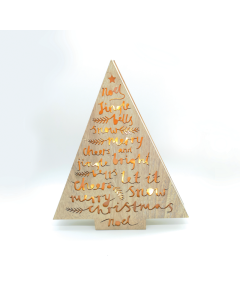 Noel
Jingle
bells
Snowed
merry
Cheers and
jingle bright
let it
Cheers Snow
merry
christmas
Noel